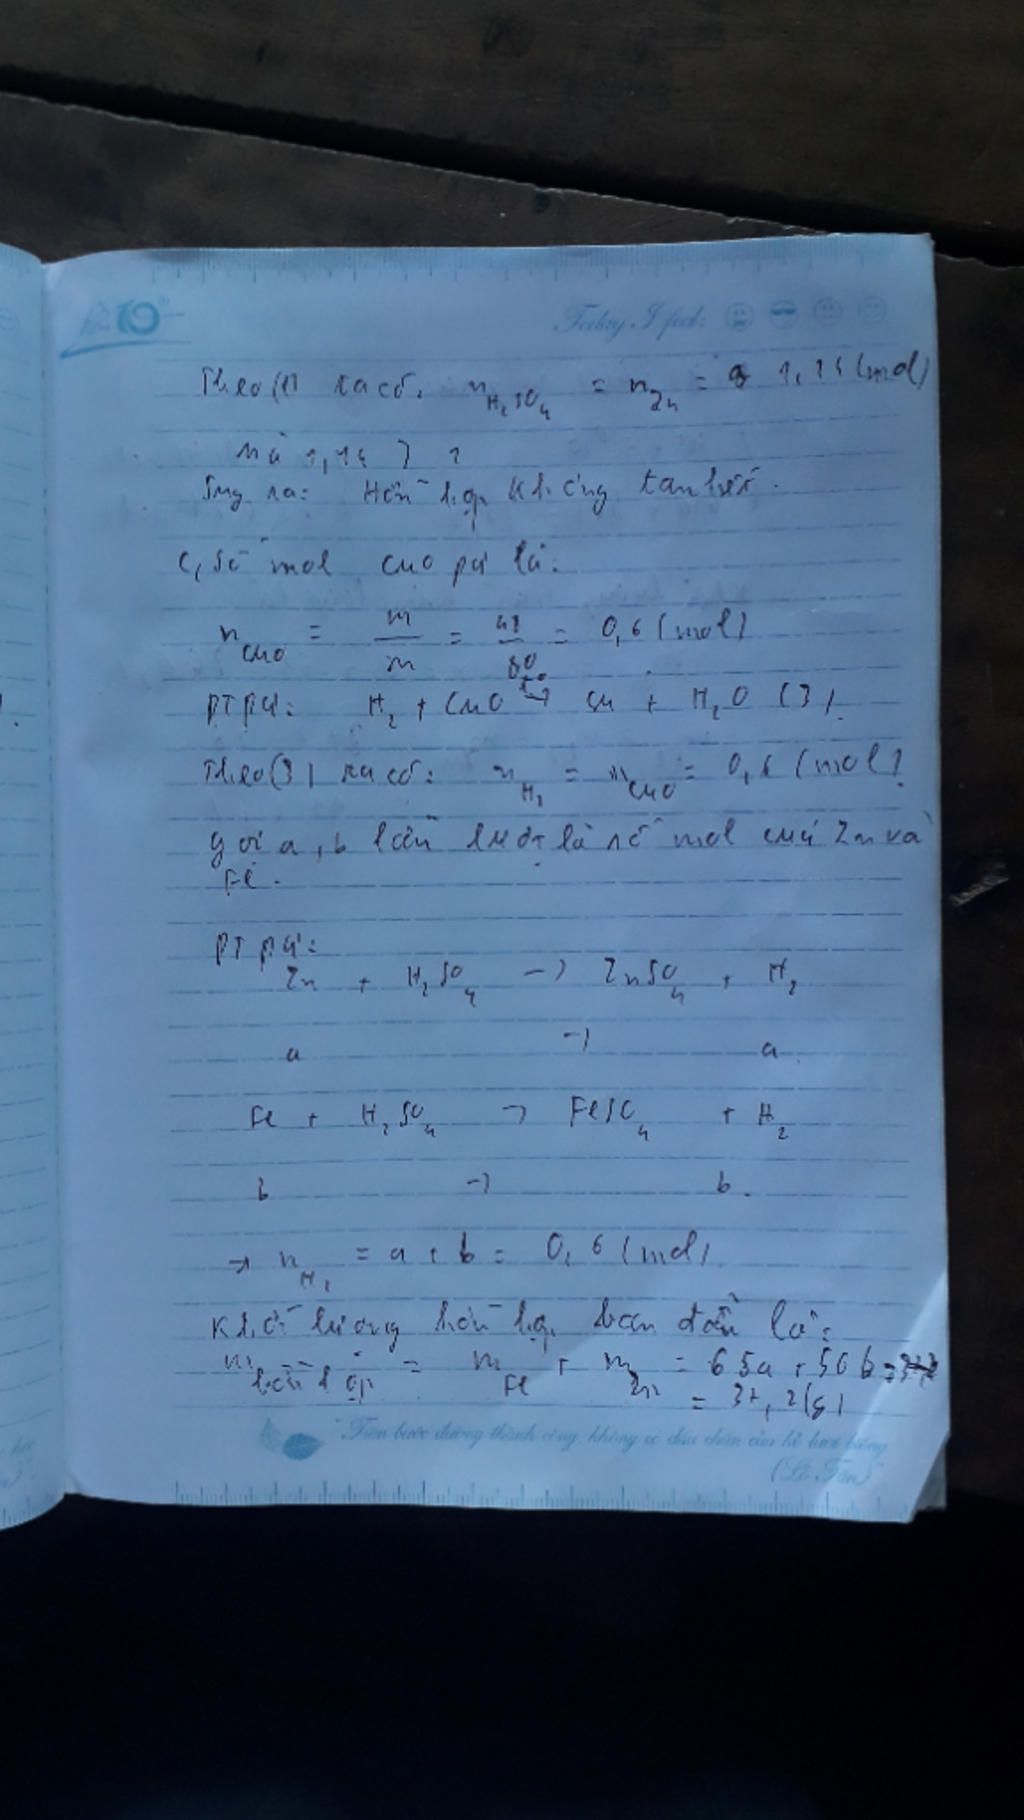 Today I feel:
Theo (1) ta có: n H₂SO₄ = n Zn = 1,14 (mol)
mà 1,14 > 1
Suy ra: Hỗn hợp không tan hết.
c, số mol CuO pư là:
n CuO = m/M = 48/80 = 0,6 (mol)
PTPƯ: H₂ + CuO t°→ Cu + H₂O (3)
Theo (3) ta có: n H₂ = n CuO = 0,6 (mol)
gọi a, b lần lượt là số mol của Zn và
Fe.
PTPƯ:
Zn + H₂SO₄ → ZnSO₄ + H₂
a → a
Fe + H₂SO₄ → FeSO₄ + H₂
b → b.
→ n H₂ = a + b = 0,6 (mol)
Khối lượng hỗn hợp ban đầu là:
m hỗn hợp = m Fe + m Zn = 65a + 56b
= 37,2 (g)
"Trên bước đường thành công, không có dấu chân của kẻ lười biếng"
(Lỗ Tấn)